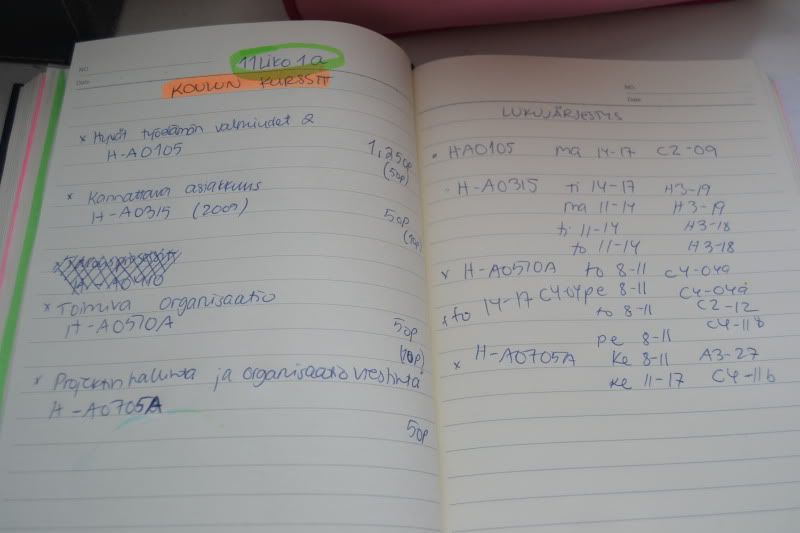 NO.
Date
11Liko1a
KOULUN KURSSIT
x Hyvät työelämän valmiudet 2
H-A0105
1,25op
(5op)
x Kannattava asiakkuus
H-A0315 (2009)
5op
x Toimiva organisaatio
H-A0510A
5op
(10p)
x Projektinhallinta ja organisaatioviestintä
H-A0705A
5op
NO.
Date
LUKUJÄRJESTYS
HA0105 ma 14-17 C2-09
H-A0315 ti 14-17 H3-19
ma 11-14 H3-19
ti 11-14 H3-18
to 11-14 H3-18
x H-A0510A to 8-11 C4-04a
x to 14-17 pe 8-11 C4-04a
to 8-11 C2-12
pe 8-11 C4-11b
x H-A0705A ke 8-11 A3-27
ke 11-17 C4-11b